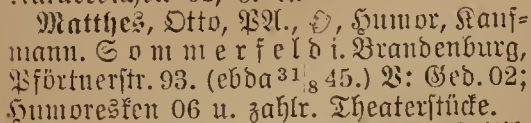 Matthes, Otto, PA., Humor, Kauf=
mann. Sommerfeld i. Brandenburg,
Pförtnerstr. 93. (ebda 31/8 45.) V: Ged. 02;
Humoresken 06 u. zahlr. Theaterstücke.